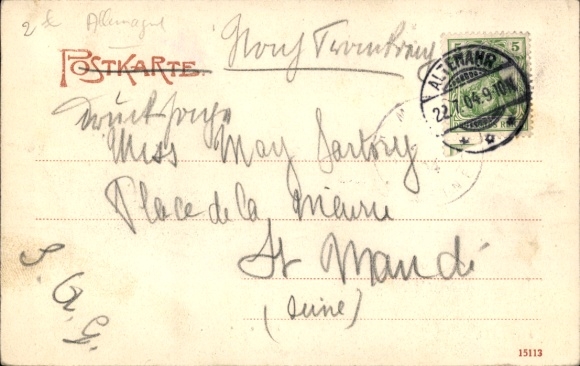 2 Allemagne
POSTKARTE.
Drucksache
5 5
ALTENAHR
22.7.04.9-10N
Miss May Sartory
Place de la Mairie
St Mandé
(Seine)
S. G. G.
15113